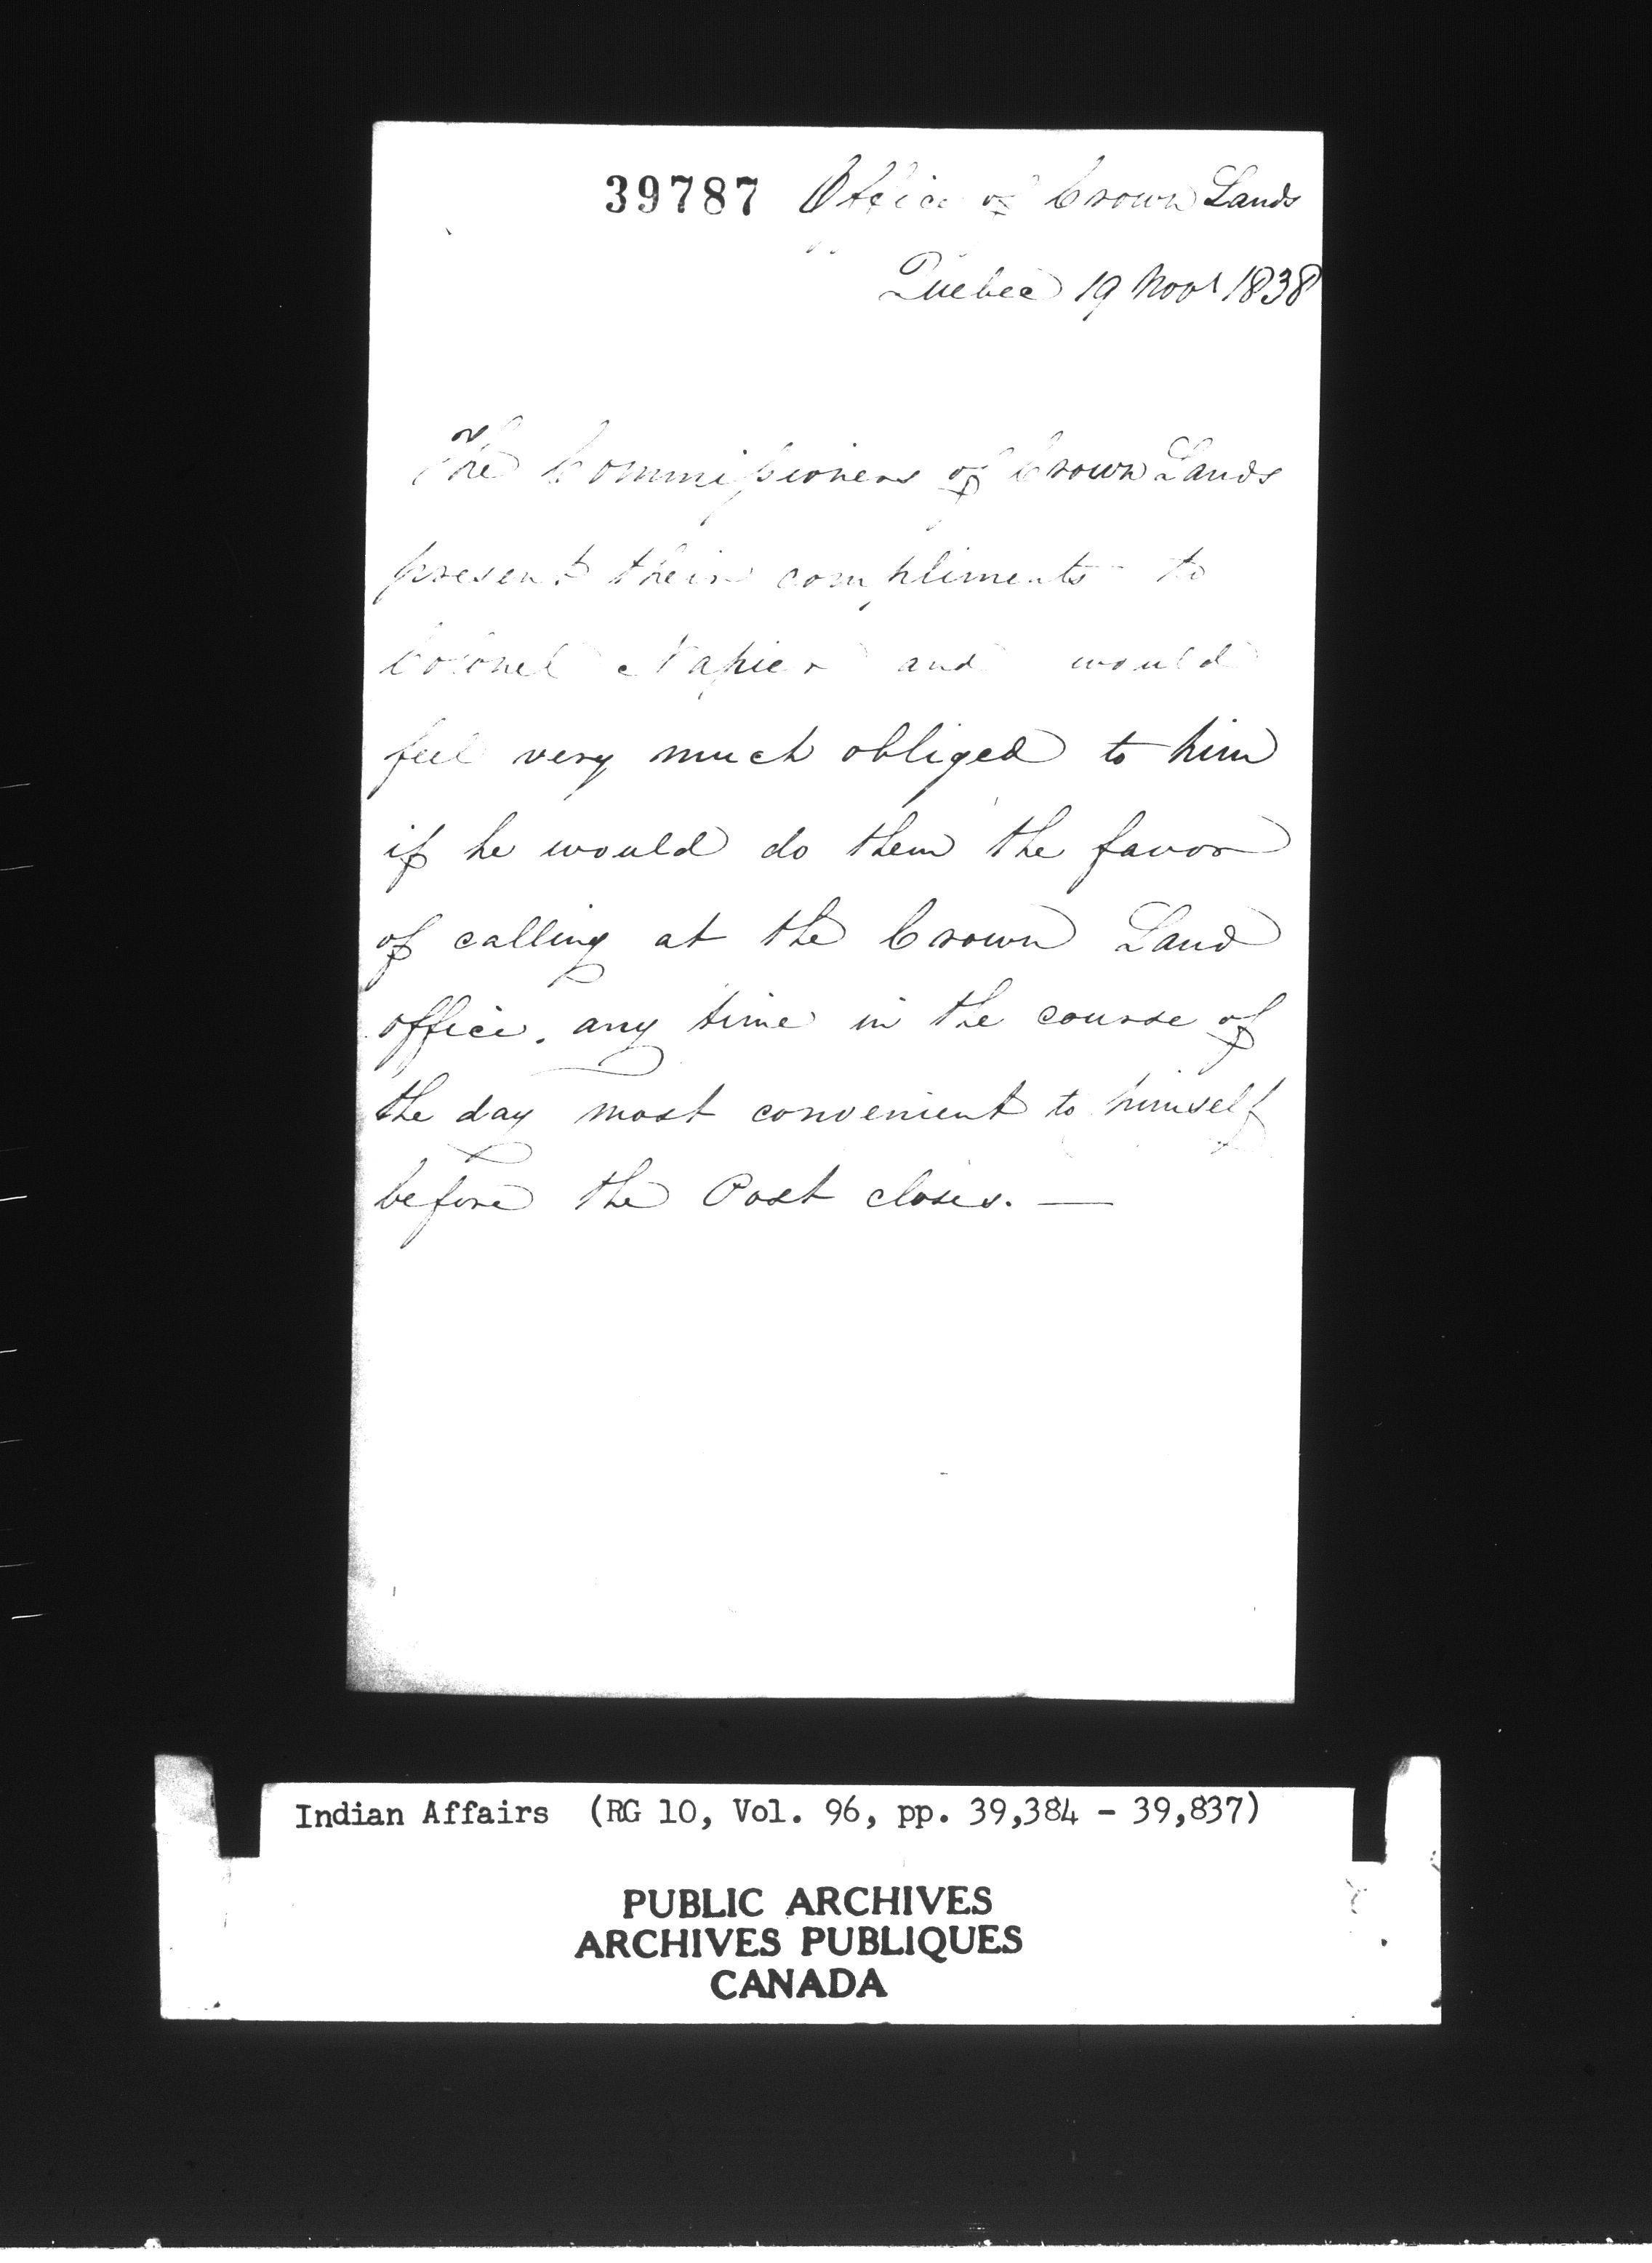 39787 Office of Crown Lands
Quebec 19 Novr 1838
The Commissioners of Crown Lands
present their compliments to
Colonel Napier and would
feel very much obliged to him
if he would do them the favor
of calling at the Crown Land
office, any time in the course of
the day most convenient to himself
before the Post closes. —
Indian Affairs (RG 10, Vol. 96, pp. 39,384 - 39,837)
PUBLIC ARCHIVES
ARCHIVES PUBLIQUES
CANADA